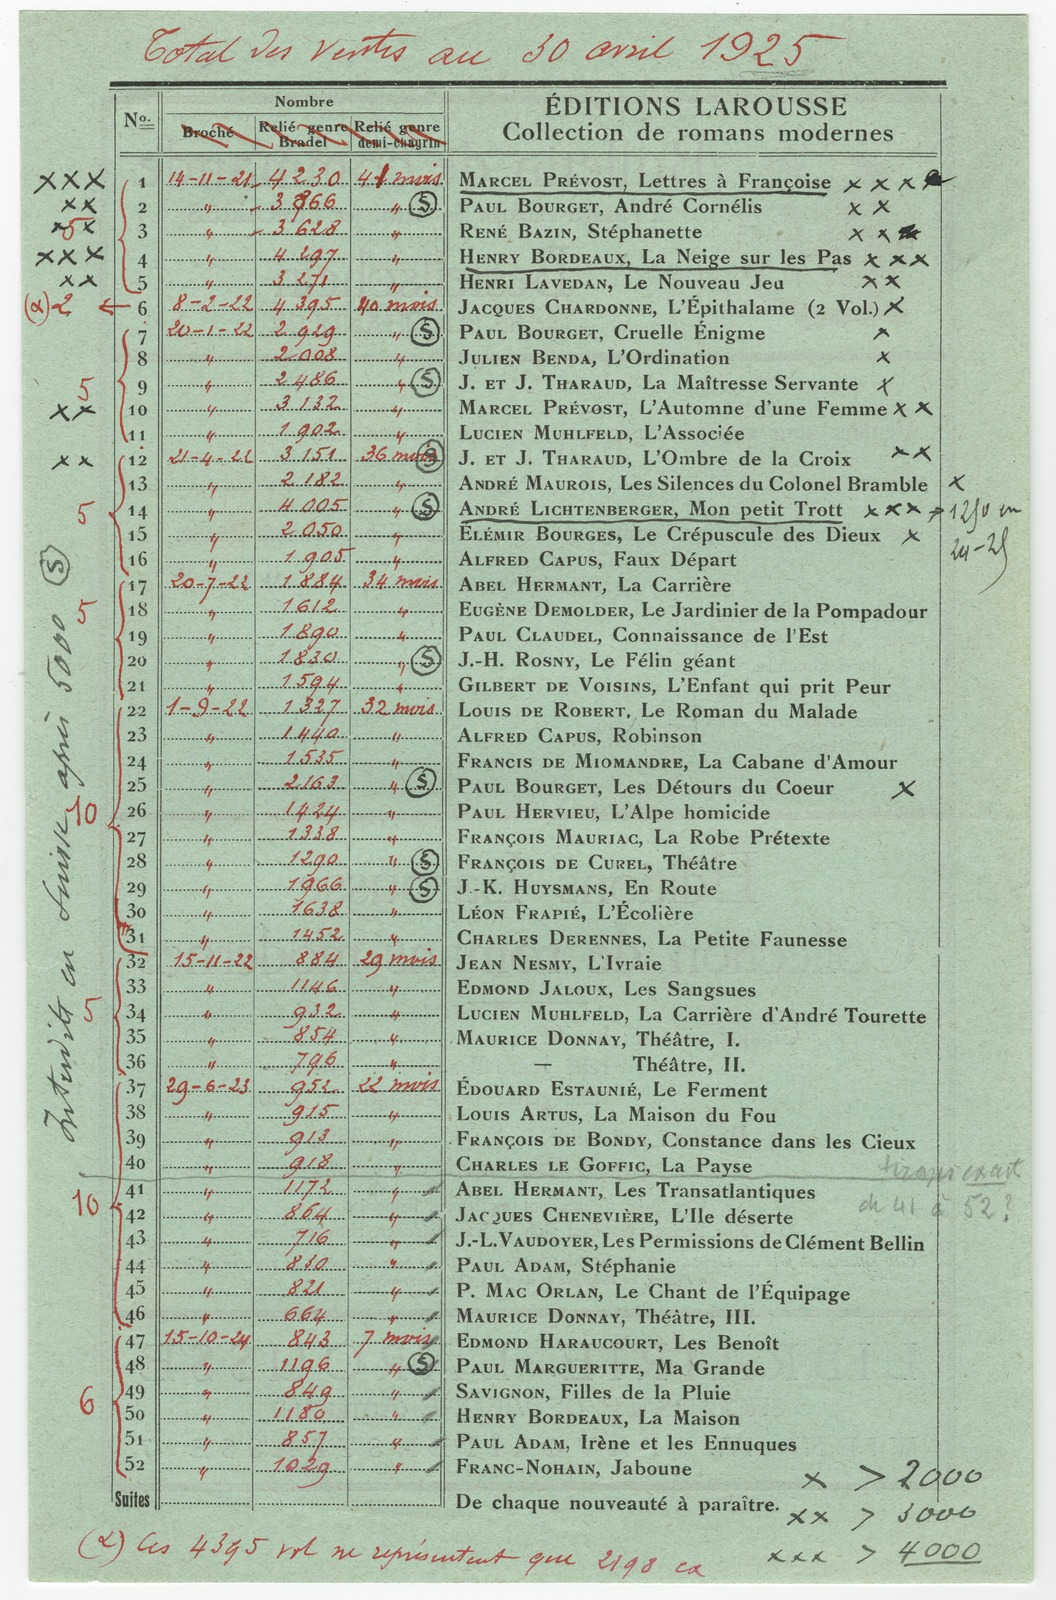 Total des ventes au 30 avril 1925
No. Nombre ÉDITIONS LAROUSSE
Broché Relié genre Bradel Relié genre demi-chagrin Collection de romans modernes
xxx 1 14-11-21 4230 41 mois MARCEL PRÉVOST, Lettres à Françoise x x x x
xx 2 " 3866 " S PAUL BOURGET, André Cornélis x x
3 " 3628 " RENÉ BAZIN, Stéphanette x x
5
xxx 4 " 4297 " HENRY BORDEAUX, La Neige sur les Pas x x x
xx 5 " 3271 " HENRI LAVEDAN, Le Nouveau Jeu x x
(2) 2 ← 6 8-2-22 4395 40 mois JACQUES CHARDONNE, L'Épithalame (2 Vol.) x
7 20-1-22 2929 " S PAUL BOURGET, Cruelle Énigme x
8 " 2008 " JULIEN BENDA, L'Ordination x
5 9 " 2486 " S J. ET J. THARAUD, La Maîtresse Servante x
xx 10 " 3132 " MARCEL PRÉVOST, L'Automne d'une Femme x x
11 " 1902 " LUCIEN MUHLFELD, L'Associée
xx 12 21-4-22 3151 36 mois S J. ET J. THARAUD, L'Ombre de la Croix x x
13 " 2182 " ANDRÉ MAUROIS, Les Silences du Colonel Bramble x
5 14 " 4005 " S ANDRÉ LICHTENBERGER, Mon petit Trott x x x → 1250 en
24-25
15 " 2050 " ÉLÉMIR BOURGES, Le Crépuscule des Dieux x
16 " 1905 " ALFRED CAPUS, Faux Départ
17 20-7-22 1884 34 mois ABEL HERMANT, La Carrière
5 18 " 1612 " EUGÈNE DEMOLDER, Le Jardinier de la Pompadour
19 " 1890 " PAUL CLAUDEL, Connaissance de l'Est
20 " 1830 " S J.-H. ROSNY, Le Félin géant
21 " 1594 " GILBERT DE VOISINS, L'Enfant qui prit Peur
22 1-9-22 1327 32 mois LOUIS DE ROBERT, Le Roman du Malade
23 " 1440 " ALFRED CAPUS, Robinson
24 " 1535 " FRANCIS DE MIOMANDRE, La Cabane d'Amour
25 " 2163 " S PAUL BOURGET, Les Détours du Coeur x
10 26 " 1424 " PAUL HERVIEU, L'Alpe homicide
27 " 1338 " FRANÇOIS MAURIAC, La Robe Prétexte
28 " 1290 " S FRANÇOIS DE CUREL, Théâtre
29 " 1966 " S J.-K. HUYSMANS, En Route
30 " 1638 " LÉON FRAPIÉ, L'Écolière
31 " 1452 " CHARLES DERENNES, La Petite Faunesse
32 15-11-22 884 29 mois JEAN NESMY, L'Ivraie
33 " 1146 " EDMOND JALOUX, Les Sangsues
5 34 " 932 " LUCIEN MUHLFELD, La Carrière d'André Tourette
35 " 854 " MAURICE DONNAY, Théâtre, I.
36 " 796 " — Théâtre, II.
37 29-6-23 952 22 mois ÉDOUARD ESTAUNIÉ, Le Ferment
38 " 915 " LOUIS ARTUS, La Maison du Fou
39 " 913 " FRANÇOIS DE BONDY, Constance dans les Cieux
40 " 918 " CHARLES LE GOFFIC, La Payse
tirage exact
10 41 " 1172 " ABEL HERMANT, Les Transatlantiques
de 41 à 52 ?
42 " 864 " JACQUES CHENEVIÈRE, L'Ile déserte
43 " 716 " J.-L. VAUDOYER, Les Permissions de Clément Bellin
44 " 830 " PAUL ADAM, Stéphanie
45 " 821 " P. MAC ORLAN, Le Chant de l'Équipage
46 " 664 " MAURICE DONNAY, Théâtre, III.
47 15-10-24 843 7 mois EDMOND HARAUCOURT, Les Benoît
48 " 1196 " S PAUL MARGUERITTE, Ma Grande
6 49 " 849 " SAVIGNON, Filles de la Pluie
50 " 1180 " HENRY BORDEAUX, La Maison
51 " 857 " PAUL ADAM, Irène et les Ennuques
52 " 1029 " FRANC-NOHAIN, Jaboune
x > 2000
Suites De chaque nouveauté à paraître.
xx > 3000
xxx > 4000
(2) Ces 4395 vol ne représentent que 2198 ex
Interdits en Suisse après 5000 S